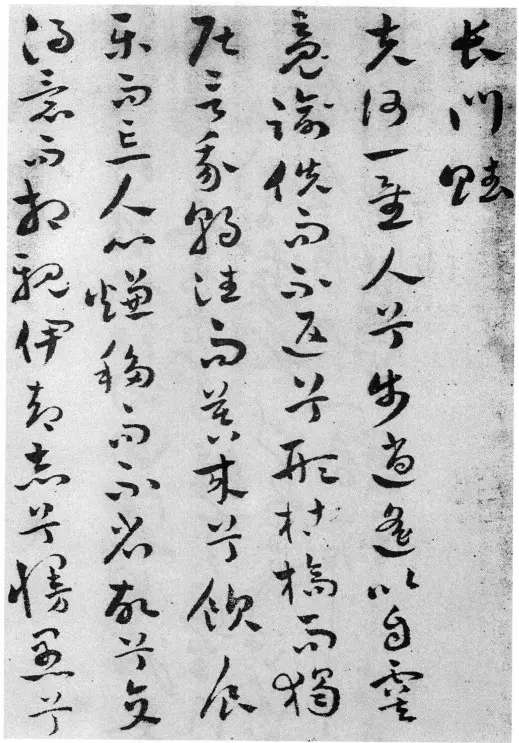 長門賦
夫何一佳人兮步逍遙以自虞
魂踰佚而不返兮形枯槁而獨
居言我朝往而暮來兮飲食
樂而忘人心慊移而不省故兮交
得意而相親伊予志兮慢愚兮